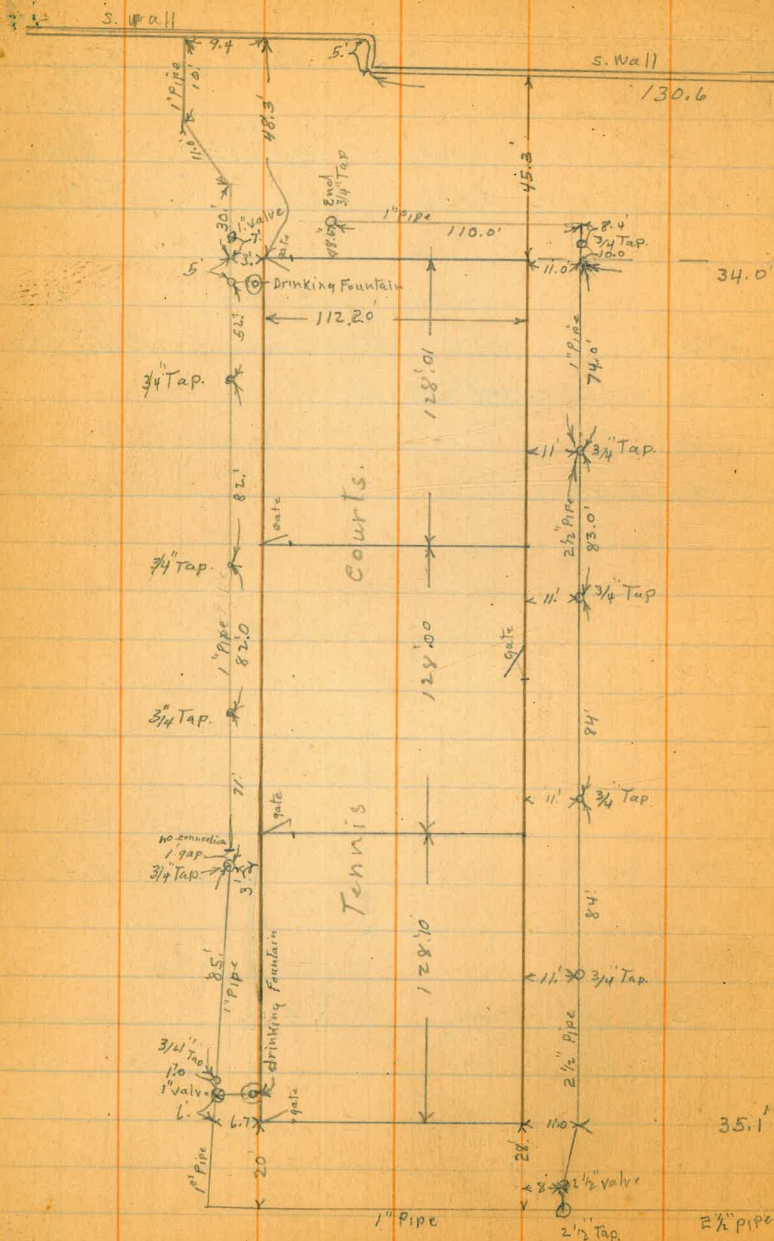 S. Wall
9.4
5'
S. Wall
130.6
1" Pipe
10'
11.0'
48.3'
45.3'
30'
1" Valve
7'
3'
5'
gate
48.6'
End
3/4" Tap
1" Pipe
110.0'
8.4'
3/4 Tap.
10.0
11.0'
34.0'
Drinking Fountain
52'
112.20'
128.01
1" Pipe
74.0'
3/4" Tap.
11'
3/4" Tap.
82.'
gate
Courts.
2 1/2" Pipe
83.0'
3/4" Tap.
11.'
3/4" Tap
1" Pipe
82.0
128.00
gate
3/4" Tap.
84'
71.'
gate
11.'
3/4" Tap
no connection
1' gap
3/4" Tap.
3'
Tennis
128.10
84'
85'
1" Pipe
drinking Fountain
11.'
3/4" Tap.
2 1/2" Pipe
3/4" Tap
1.0
1" valve
6.'
6.7
gate
11.0
35.1'
1" Pipe
20'
28'
8
2 1/2" valve
1" Pipe
2 1/2" Tap.
2 1/2" pipe